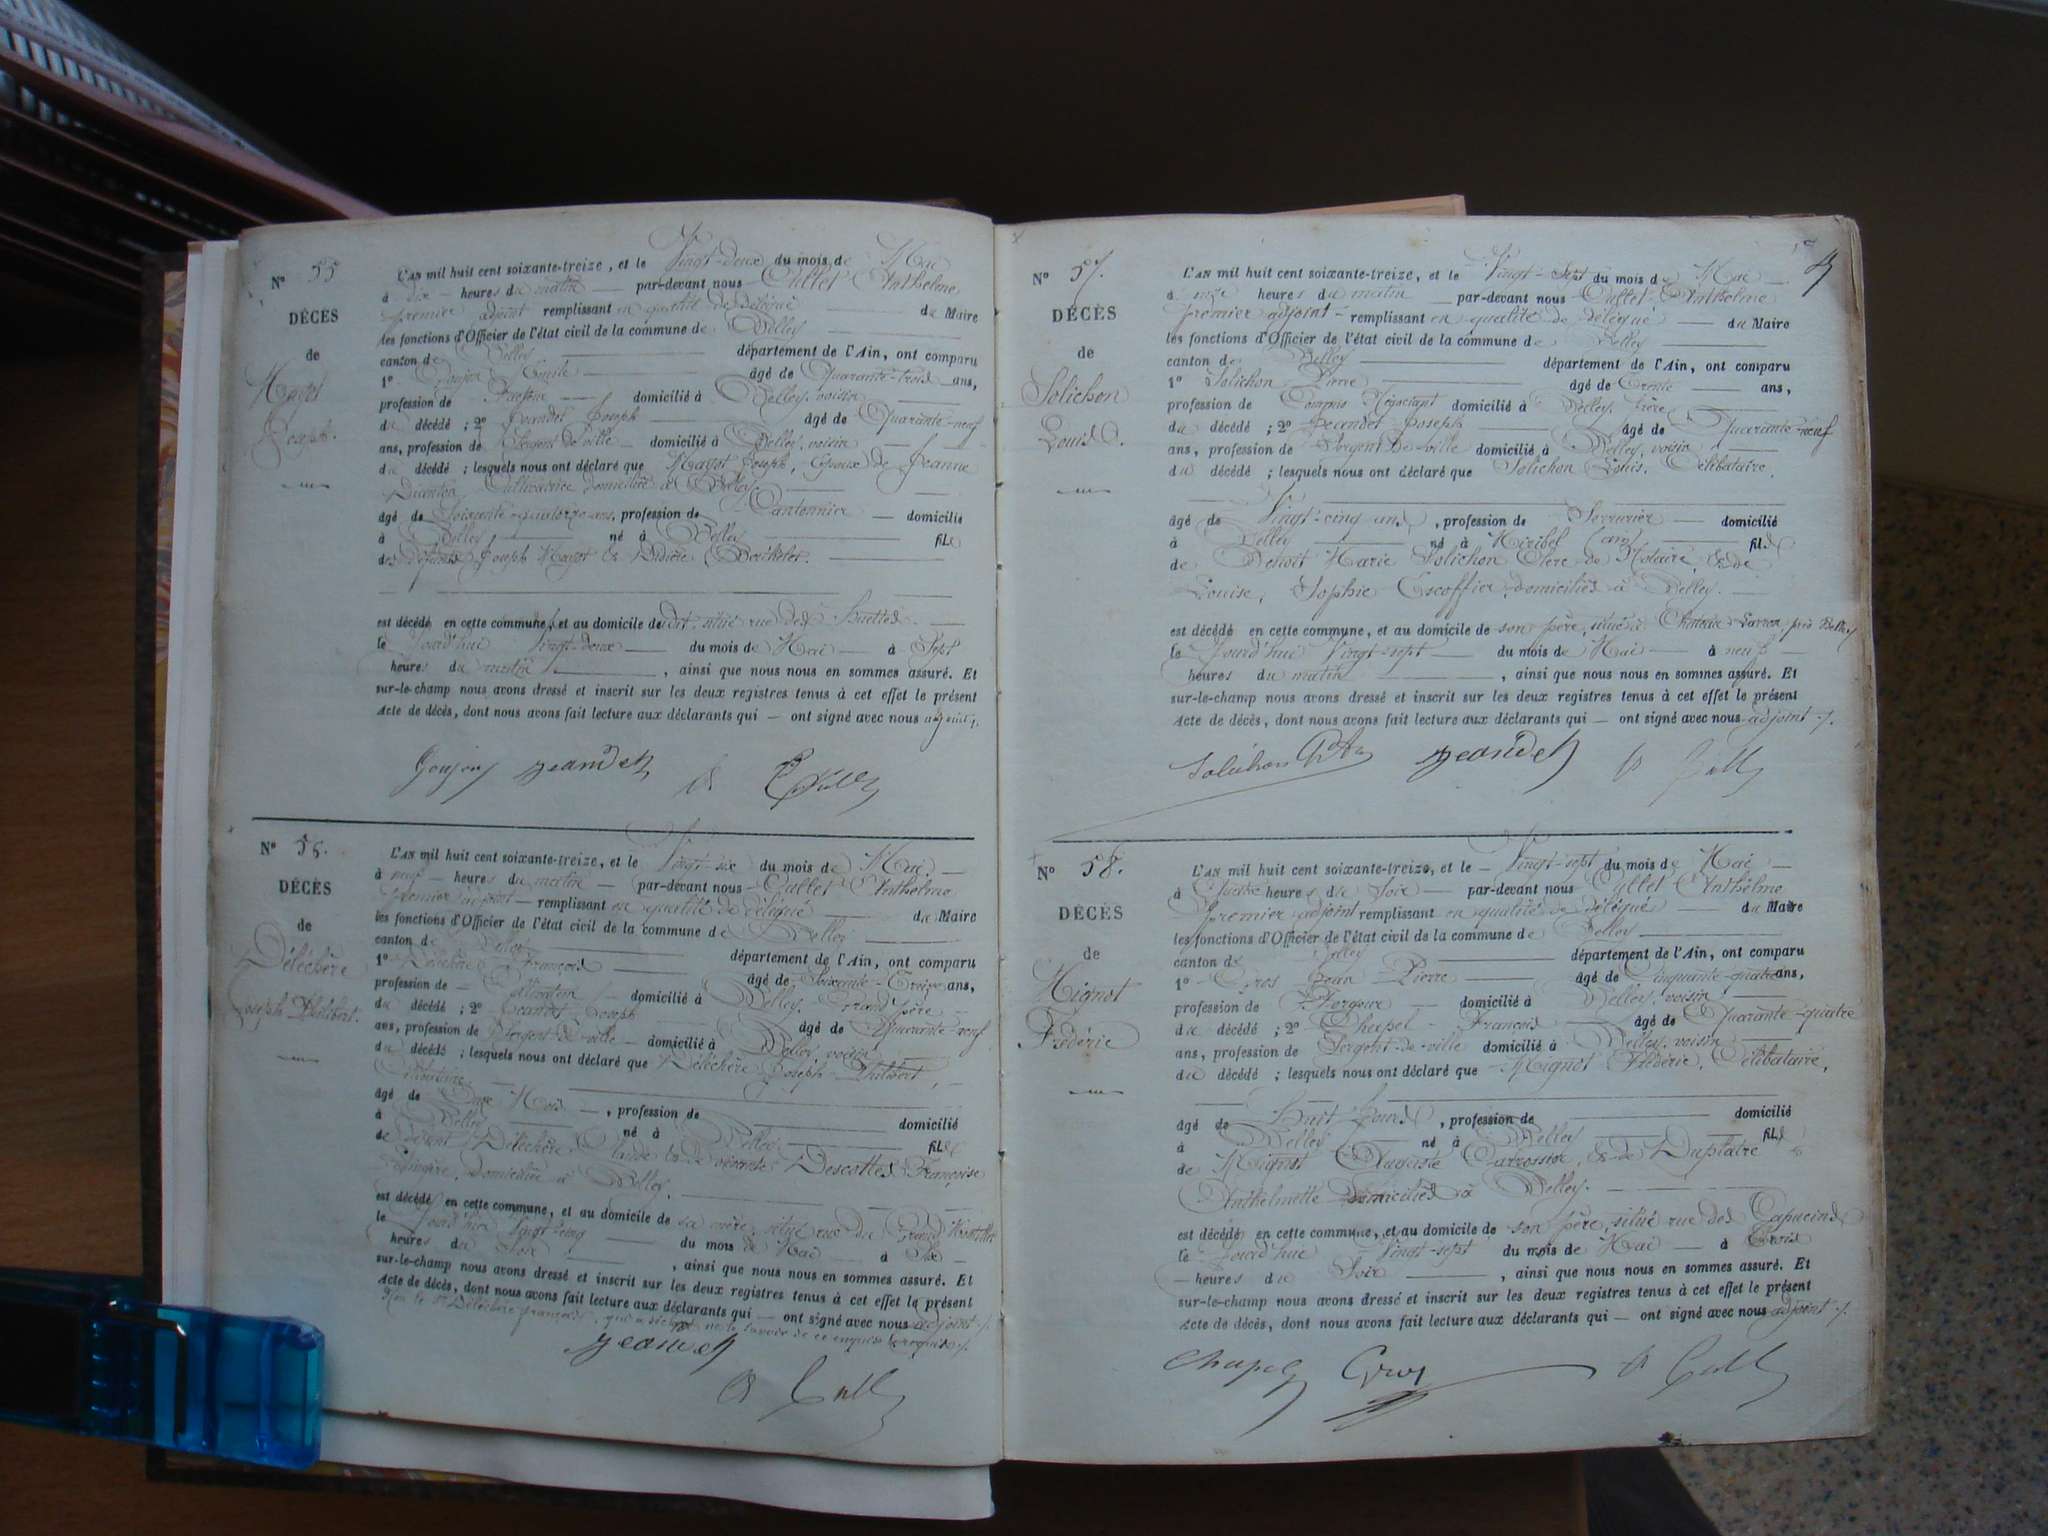 N° 55
DÉCÈS
de
Mayot
Joseph.
L'AN mil huit cent soixante-treize, et le Vingt-deux du mois de Mai
à dix heures du matin par-devant nous Cullet Anthelme
premier adjoint remplissant en qualité de délégué du Maire
les fonctions d'Officier de l'état civil de la commune de Belley
canton de Belley département de l'Ain, ont comparu
1° Goujon Emile âgé de Quarante-trois ans,
profession de domicilié à Belley, voisin
du décédé ; 2° Jeandet Joseph âgé de Quarante-neuf
ans, profession de Sergent de ville domicilié à Belley, voisin
du décédé ; lesquels nous ont déclaré que Mayot Joseph, époux de Jeanne
Cultivatrice domiciliée à Belley.
âgé de Soixante-quatorze ans, profession de Cantonnier domicilié
à Belley né à Belley fils
des défunts Joseph Mayot et Didière Berthelet.
est décédé en cette commune, et au domicile de dit, situé rue des Huttes
le jourd'hui Vingt-deux du mois de Mai à Sept
heures du matin, ainsi que nous nous en sommes assuré. Et
sur-le-champ nous avons dressé et inscrit sur les deux registres tenus à cet effet le présent
Acte de décès, dont nous avons fait lecture aux déclarants qui — ont signé avec nous adjoint.
Goujon Jeandet A Cullet
N° 56.
DÉCÈS
de
Déléchère
Joseph Philibert.
L'AN mil huit cent soixante-treize, et le Vingt-six du mois de Mai
à neuf heures du matin par-devant nous Cullet Anthelme
premier adjoint remplissant en qualité de délégué du Maire
les fonctions d'Officier de l'état civil de la commune de Belley
canton de Belley département de l'Ain, ont comparu
1° Déléchère François âgé de Soixante-Treize ans,
profession de domicilié à Belley, Grand père
du décédé ; 2° Jeandet Joseph âgé de Quarante-neuf
ans, profession de Sergent de ville domicilié à Belley, voisin
du décédé ; lesquels nous ont déclaré que Déléchère Joseph Philibert,
célibataire
âgé de Mois, profession de domicilié
à Belley né à Belley fils
de défunt Déléchère Claude et de vivante Descottes Françoise
Lingère, domiciliée à Belley.
est décédé en cette commune, et au domicile de sa mère, situé rue du Grand
le jourd'hui Vingt-cinq du mois de Mai à Six
heures du Soir, ainsi que nous nous en sommes assuré. Et
sur-le-champ nous avons dressé et inscrit sur les deux registres tenus à cet effet le présent
Acte de décès, dont nous avons fait lecture aux déclarants qui — ont signé avec nous adjoint.
Non le Sr Déléchère françois, qui a déclaré ne le savoir de ce enquis et requis.
Jeandet A Cullet
N° 57.
DÉCÈS
de
Solichon
Louis.
L'AN mil huit cent soixante-treize, et le Vingt-Sept du mois de Mai
à onze heures du matin par-devant nous Cullet Anthelme
premier adjoint remplissant en qualité de délégué du Maire
les fonctions d'Officier de l'état civil de la commune de Belley
canton de Belley département de l'Ain, ont comparu
1° Solichon Pierre âgé de Trente ans,
profession de Commis Négociant domicilié à Belley, frère
du décédé ; 2° Jeandet Joseph âgé de Quarante-neuf
ans, profession de Sergent de ville domicilié à Belley, voisin
du décédé ; lesquels nous ont déclaré que Solichon Louis, Célibataire.
âgé de Vingt-cinq ans, profession de Serrurier domicilié
à Belley né à Miribel (ain) fils
de Benoit Marie Solichon Clerc de Notaire, et de
Louise, Sophie Escoffier domiciliés à Belley.
est décédé en cette commune, et au domicile de son père, situé à près Belley
le jourd'hui Vingt-sept du mois de Mai à neuf
heures du matin, ainsi que nous nous en sommes assuré. Et
sur-le-champ nous avons dressé et inscrit sur les deux registres tenus à cet effet le présent
Acte de décès, dont nous avons fait lecture aux déclarants qui — ont signé avec nous adjoint.
Solichon Jeandet A Cullet
N° 58.
DÉCÈS
de
Mignot
Frédéric
L'AN mil huit cent soixante-treize, et le Vingt-sept du mois de Mai
à Quatre heures du Soir par-devant nous Cullet Anthelme
premier adjoint remplissant en qualité de délégué du Maire
les fonctions d'Officier de l'état civil de la commune de Belley
canton de Belley département de l'Ain, ont comparu
1° Gros Jean Pierre âgé de Cinquante-quatre ans,
profession de Forgeur domicilié à Belley, voisin
du décédé ; 2° Chapel François âgé de Quarante-quatre
ans, profession de Sergent-de-ville domicilié à Belley, voisin
du décédé ; lesquels nous ont déclaré que Mignot Frédéric, Célibataire,
âgé de Huit jours, profession de domicilié
à Belley né à Belley fils
de Mignot Auguste Carrossier, et de Duplatre
Anthelmette domiciliés à Belley.
est décédé en cette commune, et au domicile de son père, situé rue des Capucins
le jourd'hui Vingt-sept du mois de Mai à Trois
heures du Soir, ainsi que nous nous en sommes assuré. Et
sur-le-champ nous avons dressé et inscrit sur les deux registres tenus à cet effet le présent
Acte de décès, dont nous avons fait lecture aux déclarants qui — ont signé avec nous adjoint.
Chapel Gros A Cullet